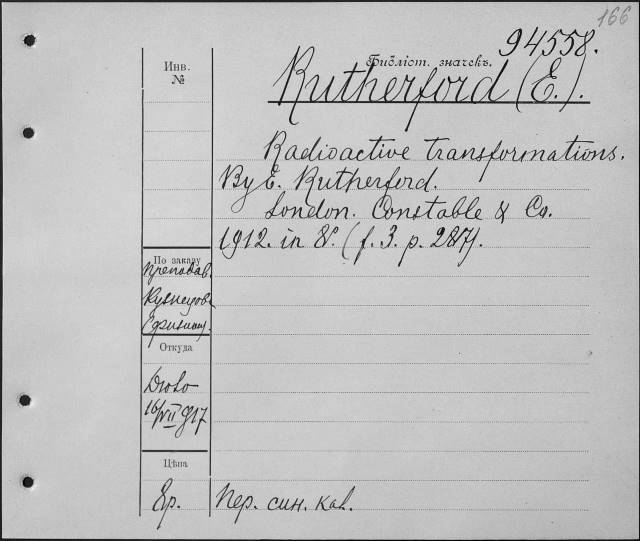 166
94558.
Инв.
№
Библіот. значекъ.
Rutherford (E.).
Radioactive transformations.
By E. Rutherford.
London. Constable & Co.
1912. in 8º. (f. 3. p. 287).
По заказу
Преподав.
Кузнецова
(физику).
Откуда
16/VII 917
Цѣна
8р.
Пер. син. кал.